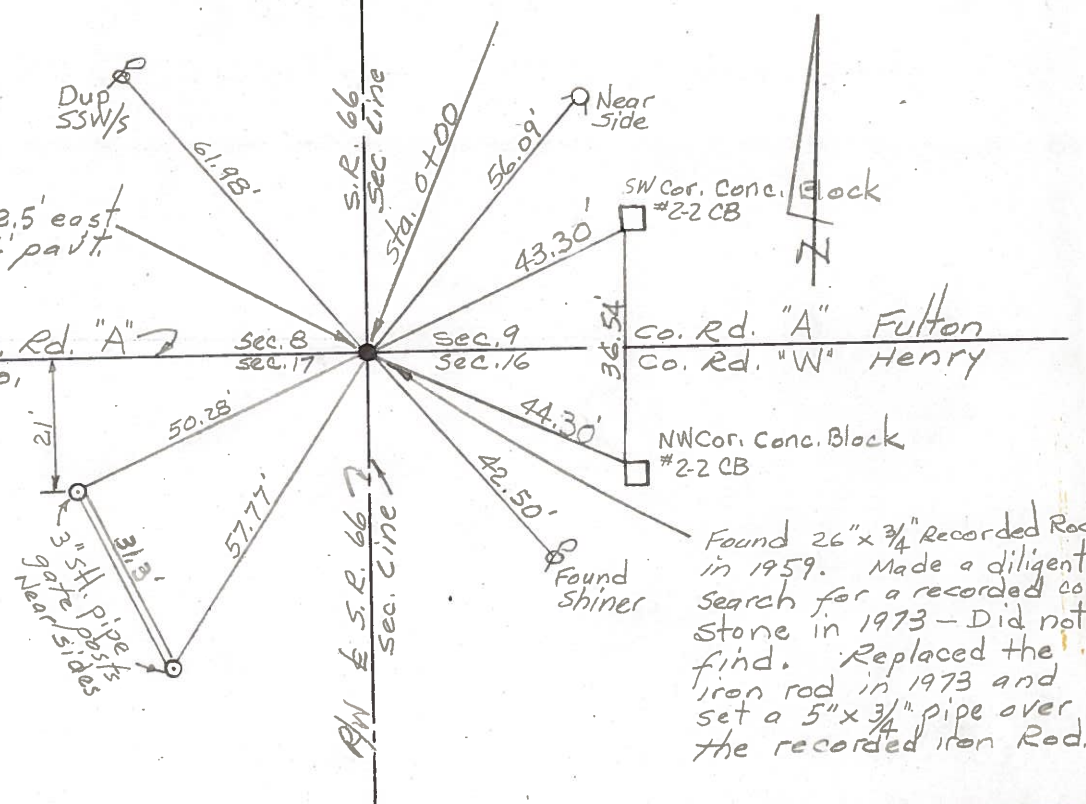 Dup
SSW/s
61.98'
S.R. 66
Sec Line
Sta. 0+00
56.09'
Near
Side
SW Cor. Conc. Block
#2-2 CB
2.5' east
pav't.
43.30'
N
36.54'
Rd. "A"
Sec. 8
Sec. 9
Co. Rd. "A" Fulton
Sec. 17
Sec. 16
Co. Rd. "W" Henry
21'
50.28'
44.30'
NW Cor. Conc. Block
#2-2 CB
57.77'
42.50'
31.3'
3" stl. pipe
gate posts
Near sides
Found
Shiner
R/W ⅊ S.R. 66
Sec. Line
Found 26" x 3/4" Recorded Rod
in 1959. Made a diligent
search for a recorded co
stone in 1973 - Did not
find. Replaced the
iron rod in 1973 and
set a 5" x 3/4" pipe over
the recorded iron Rod.